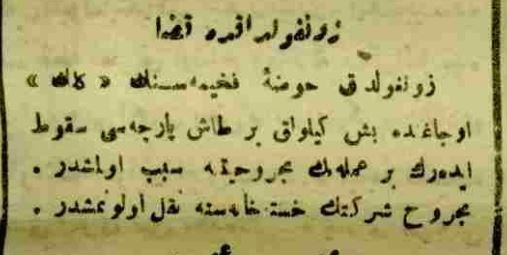 زونغولداقده قضا
زونغولدق حوضهٔ فخيمه سنك « لاك »
اوجاغنده بش كيلولق بر طاش پارچه سی سقوط
ايده رك بر عمله نك مجروحيتنه سبب اولمشدر .
مجروح شركتك خسته خانه سنه نقل اولونمشدر .